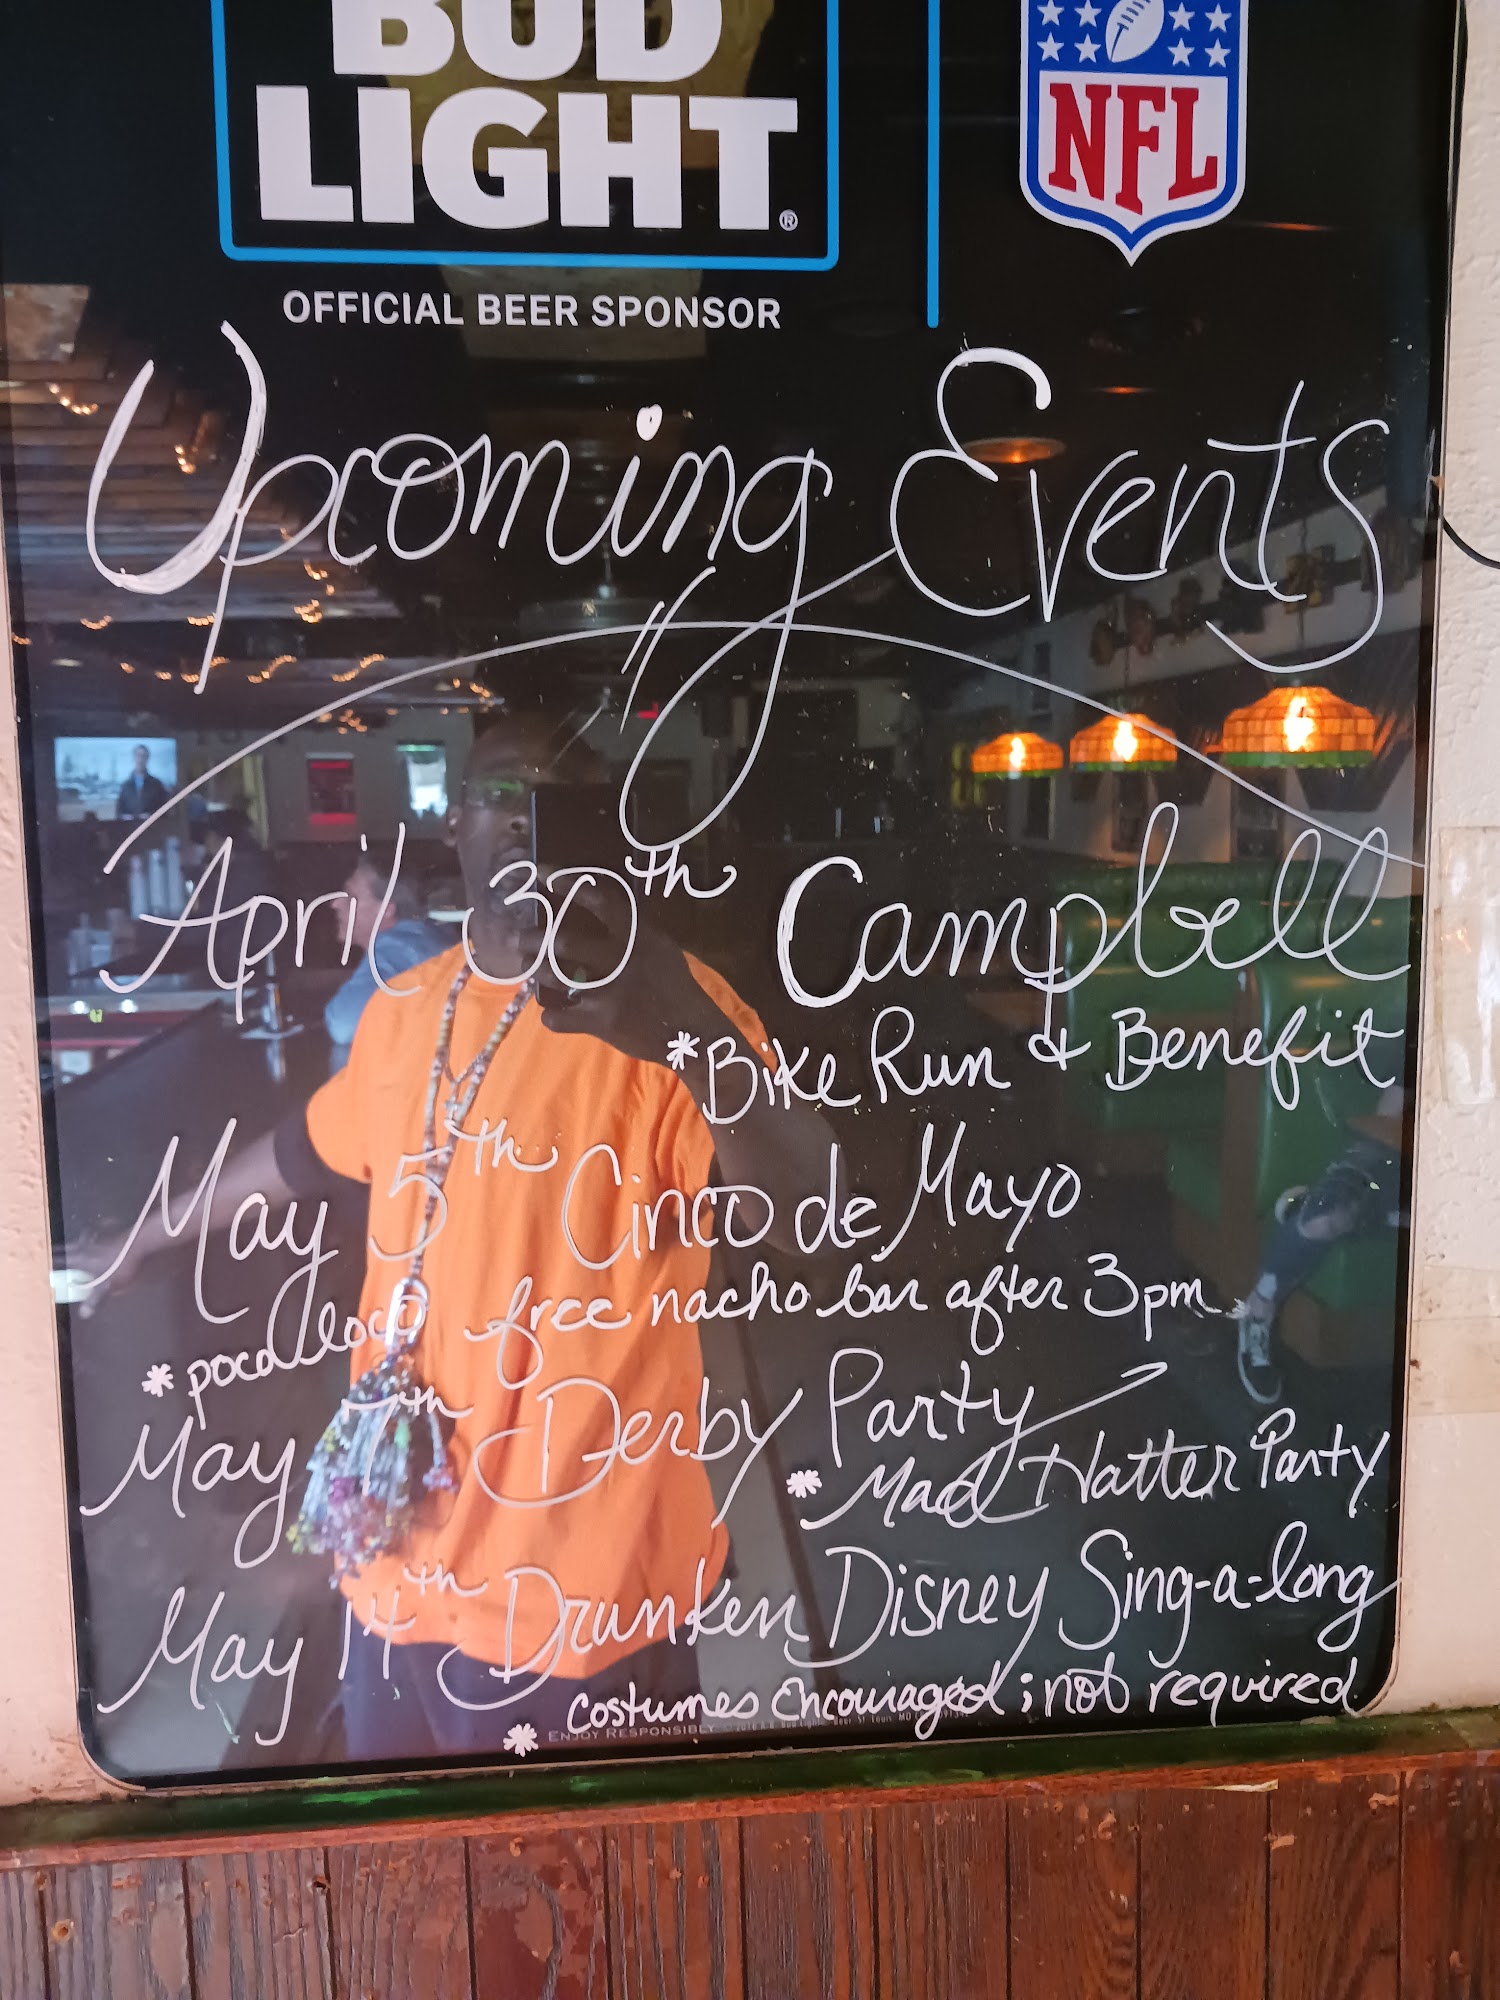 BUD
LIGHT®
NFL
OFFICIAL BEER SPONSOR
Upcoming Events
April 30th Campbell
*Bike Run & Benefit
May 5th Cinco de Mayo
*poco loco free nacho bar after 3pm
May 7th Derby Party
*Mad Hatter Party
May 14th Drunken Disney Sing-a-long
* costumes encouraged; not required
ENJOY RESPONSIBLY